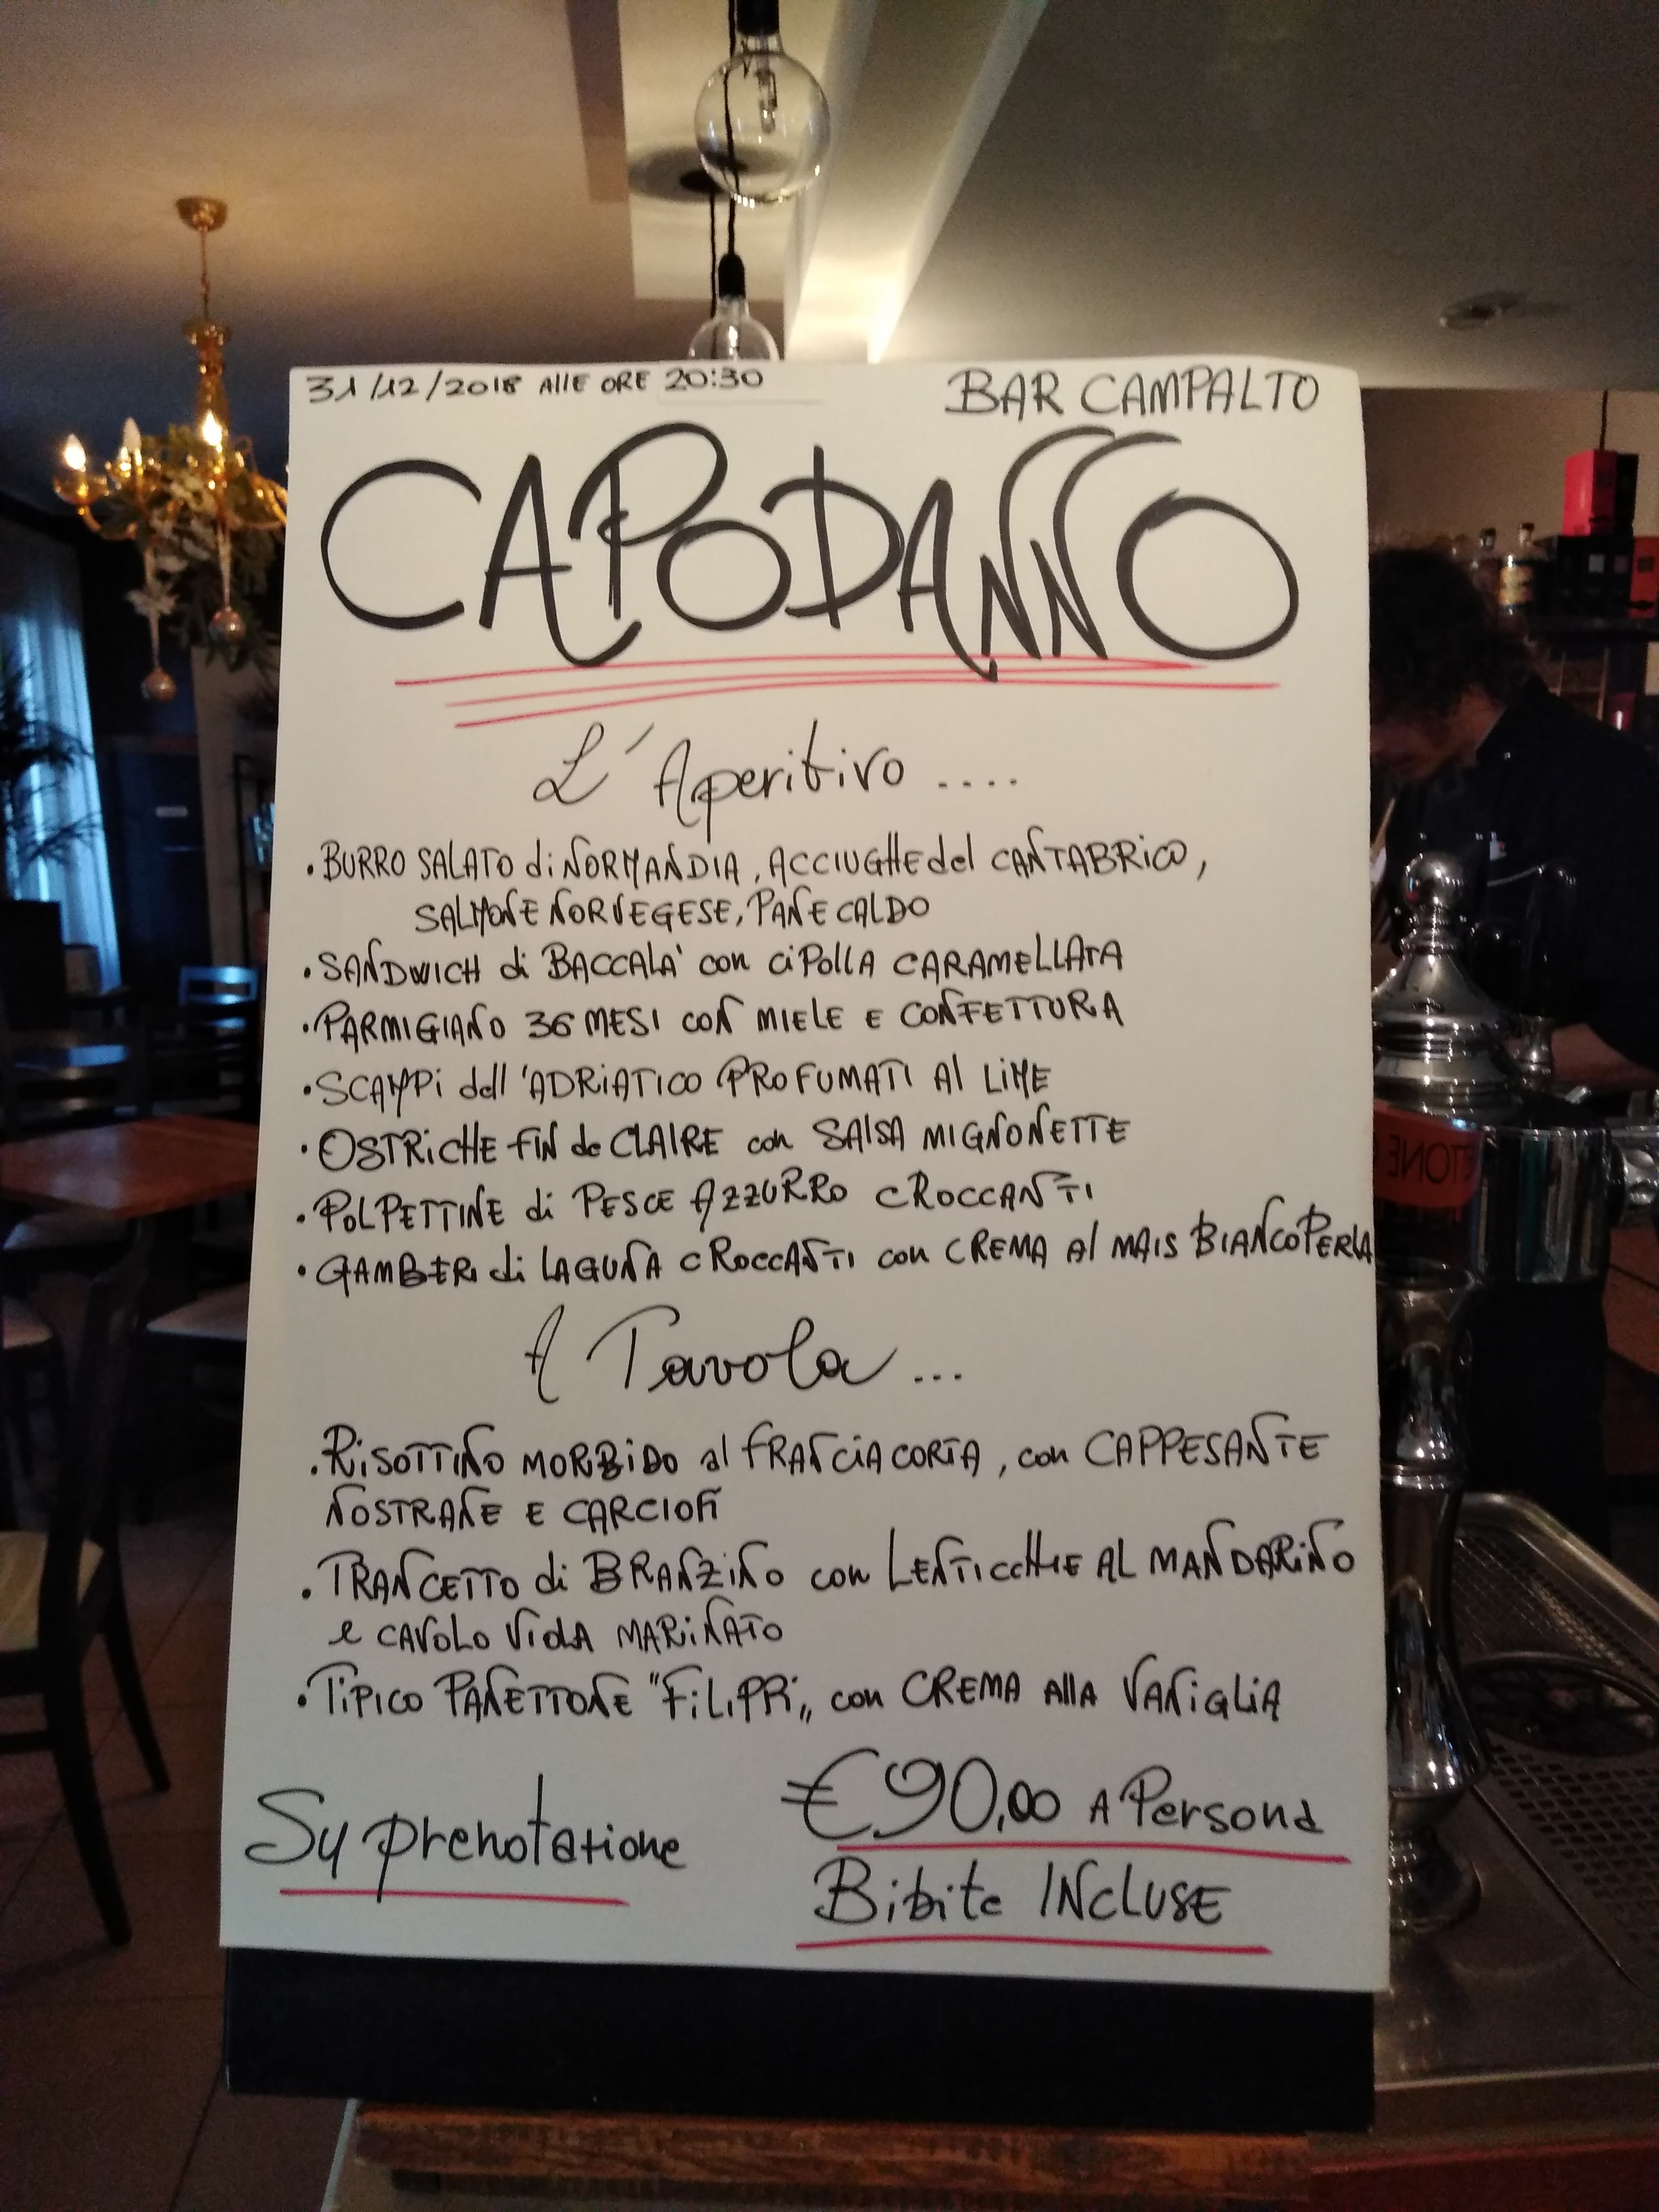 31/12/2018 AllE ORE 20:30
BAR CAMPALTO
CAPODANNO
L'Aperitivo ....
• BURRO SALATO di NORMANDIA, ACCIUGHE del CANTABRICO,
SALMONE NORVEGESE, PANE CALDO
• SANDWICH di BACCALA' con ciPollA CARAMELLATA
• PARMIGIANO 36 MESI CON MIELE E CONFETTURA
• SCAMPi dell'ADRiATICO PROFUMATI Al LIME
• OSTRiCHE FIN de CLAIRE con SAlSA MIGNONETTE
• POLPETTINE di PESCE AZZURRO CROCCANTI
• GAMBERi di LAGUNA CROCCANTI con CREMA Al MAIS BIANCOPERLA
A Tavola ...
• RiSOTTINO MORBiDO al FRANCiACORTA, con CAPPESANTE
NOSTRANE E CARCIOFI
• TRANCETTO di BRANZiNO con LENTiccHIE AL MANDARiNO
e CAVOLO VIOLA MARiNATO
• TiPiCO PANETTONE "FiLiPPi„ con CREMA AllA VANiGLiA
Su prenotazione
€90,00 A Persona
Bibite INCLUSE
ETONE